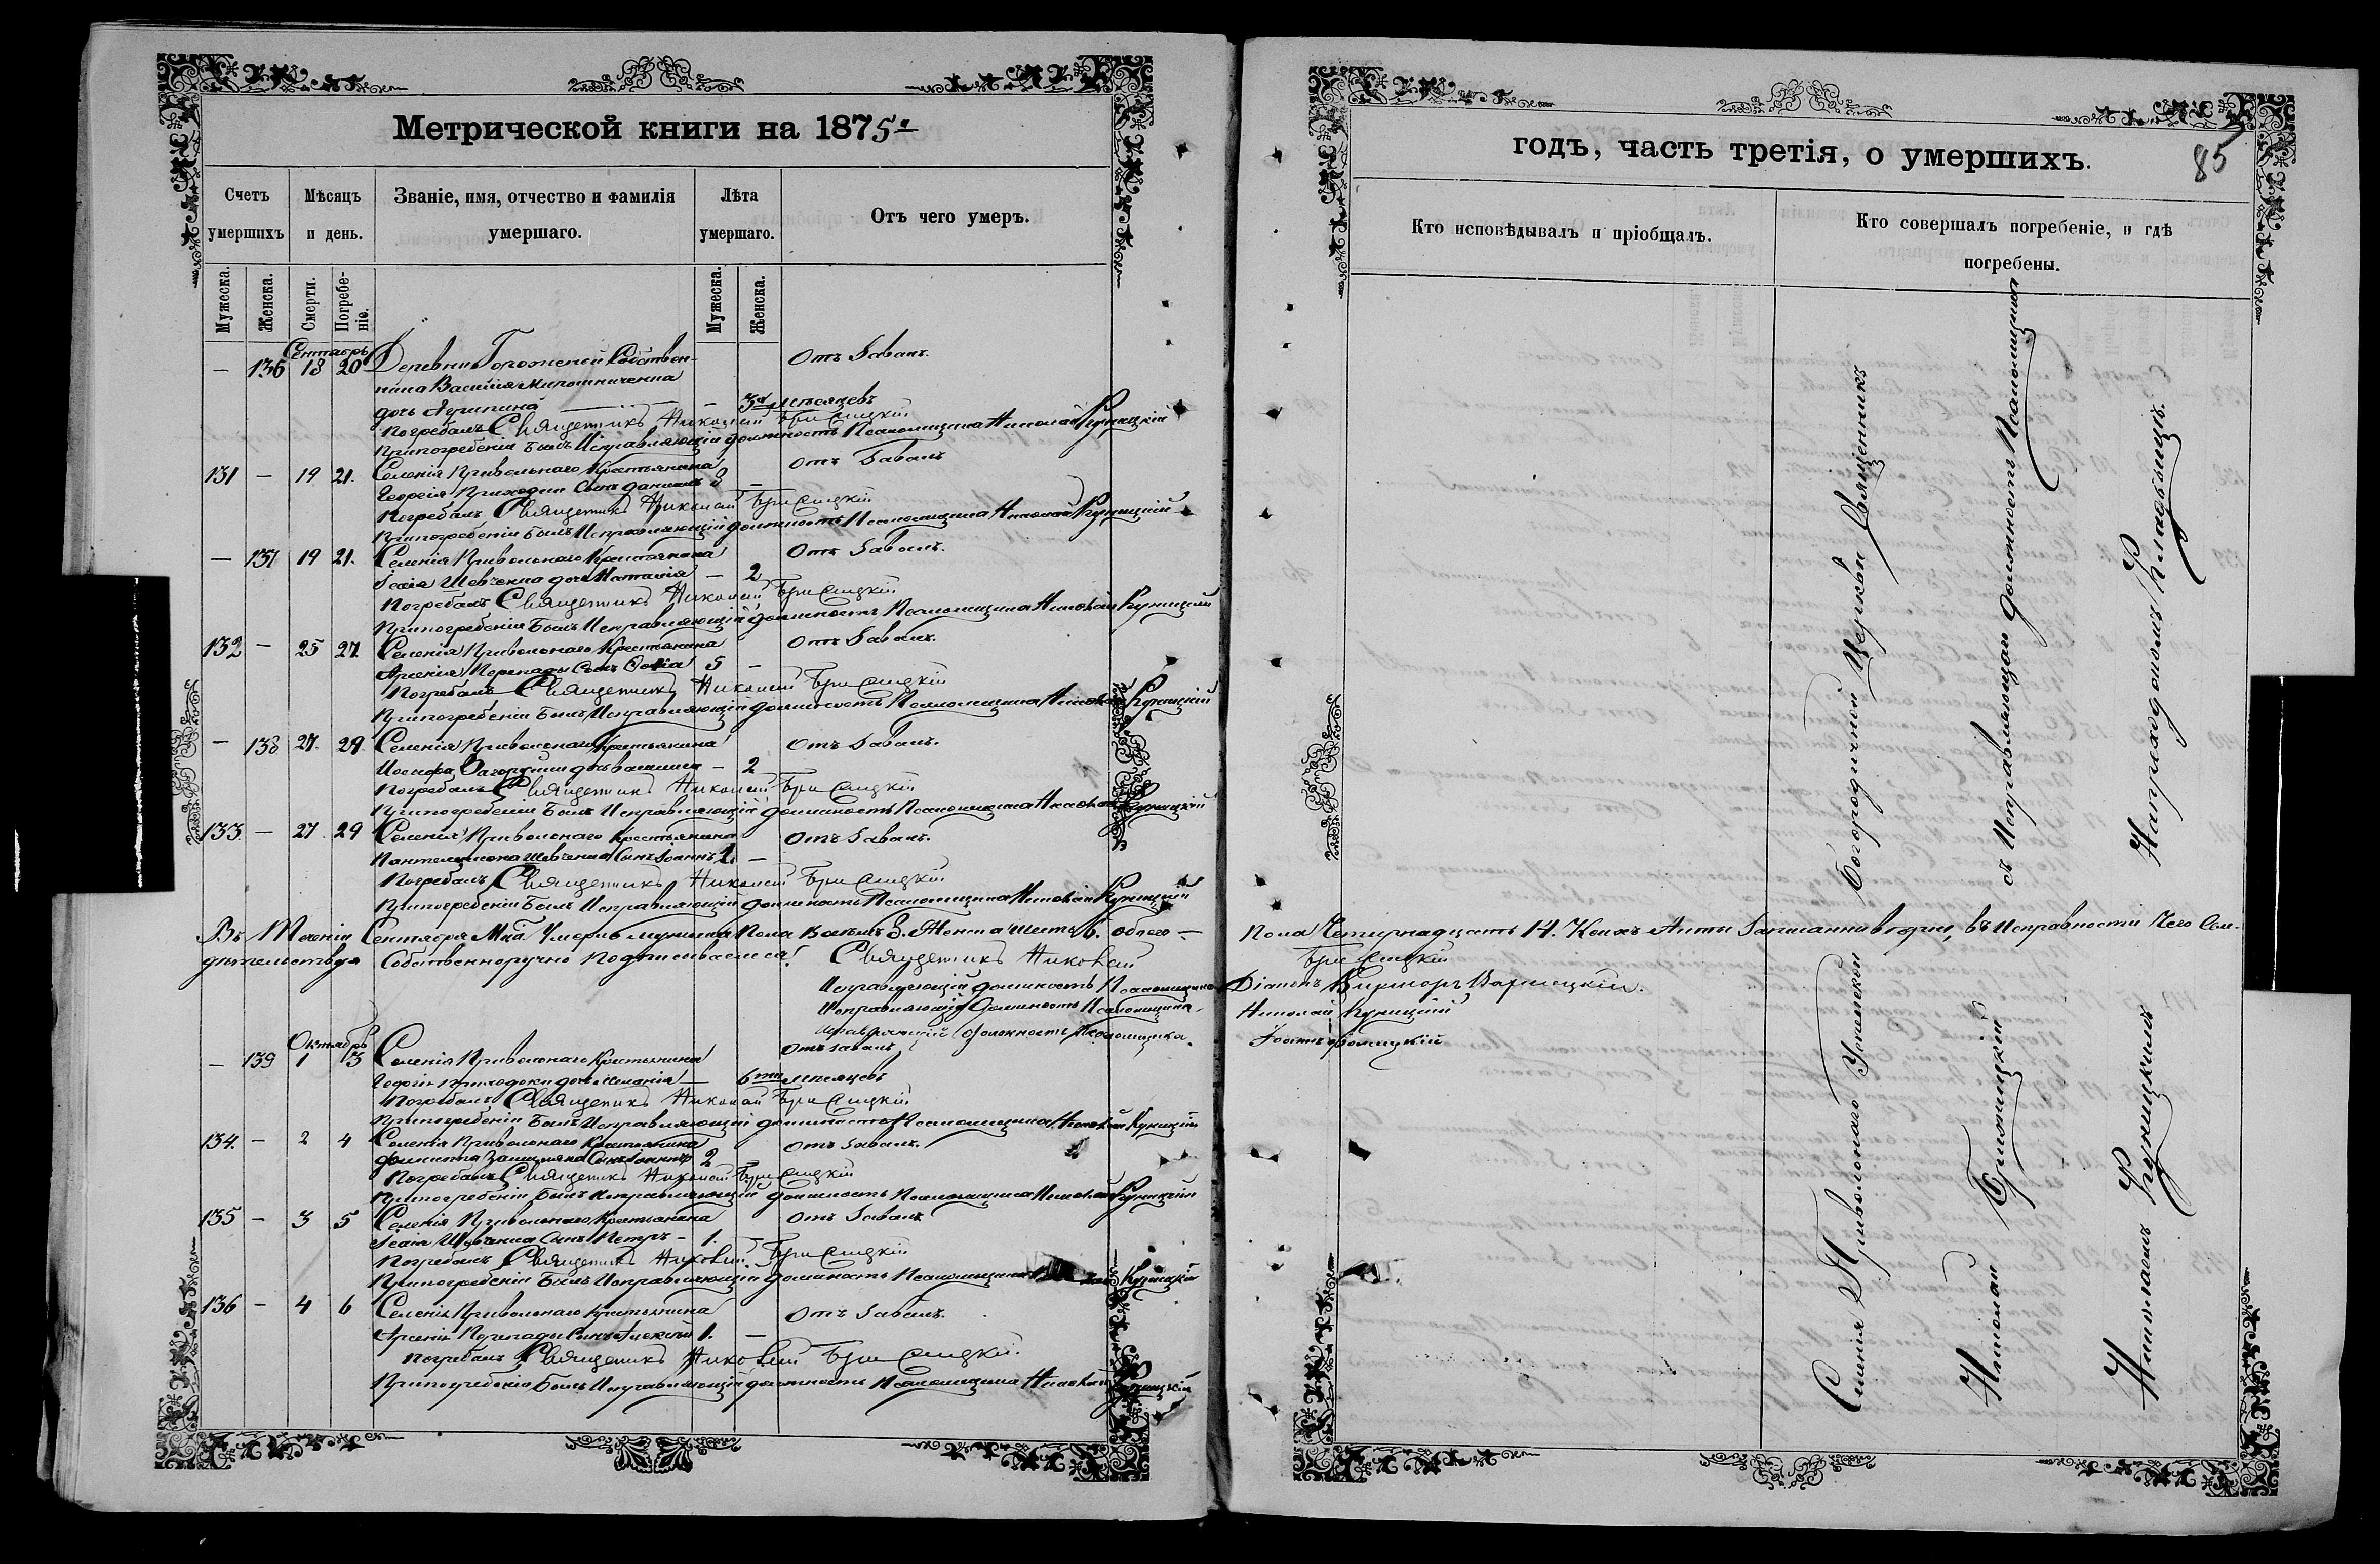 Метрической книги на 1875 г
Счетъ умершихъ
Мѣсяцъ и день.
Званіе, имя, отчество и фамилія умершаго.
Лѣта умершаго.
Отъ чего умеръ.
Мужеска.
Женска.
Смерти.
Погребеніе.
Мужеска.
Женска.
Сентябрь
— 136 18 20 Деревни Собствен- Отъ Забалъ.
ника Василія Мирошниченка
дочь Агрипина — — 3х мѣсяцевъ
Погребалъ Священникъ Николай Бриницкій
При погребеніи былъ Исправляющій должность Псаломщика Николай Куницкій
131 — 19 21. Селенія Привольнаго Крестьянина Отъ Забалъ
Георгія Приходки Сынъ Даніилъ 3 —
Погребалъ Священникъ Николай Бриницкій
При погребеніи былъ Исправляющій должность Псаломщика Николай Куницкій
— 137 19 21. Селенія Привольнаго Крестьянина Отъ Забалъ.
Ісаія Шевченка дочь Наталія — 2
Погребалъ Священникъ Николай Бриницкій
При погребеніи Былъ Исправляющій должность Псаломщика Николай Куницкій
132 — 25 27. Селенія Привольнаго Крестьянина Отъ Забалъ.
Арсенія Перепады Сынъ 5 —
Погребалъ Священникъ Николай Бриницкій
При погребеніи Былъ Исправляющій должность Псаломщика Николай Куницкій
— 138 27. 29. Селенія Привольнаго Крестьянина Отъ Забалъ.
Іосифа дочь — 2
Погребалъ Священникъ Николай Бриницкій
При погребеніи Былъ Исправляющій должность Псаломщика Николай Куницкій
133 — 27 29 Селенія Привольнаго Крестьянина Отъ Забалъ.
Пантелеимона Шевченка Сынъ Іоаннъ 1. —
Погребалъ Священникъ Николай Бриницкій
При погребеніи Былъ Исправляющій должность Псаломщика Николай Куницкій
Въ Теченіи Сентября Мца Умерло мужеска Пола Восемь 8. Женска Шесть 6. Обоего —
дѣтельствуя Собственноручно подписываемся! Священникъ Николай
Исправляющій должность Псаломщика
Исправляющій Должность Псаломщика
Исправляющій должность Псаломщика.
Октябрь
— 139 1 3 Селенія Привольнаго Крестьянина Отъ забалъ
Георгія Приходки дочь Меланія — 6ти мѣсяцевъ
Погребалъ Священникъ Николай Бриницкій
При погребеніи Былъ Исправляющій должность Псаломщика Николай Куницкій
134. — 2 4 Селенія Привольнаго Крестьянина Отъ Забалъ.
Сынъ Іоаннъ 2
Погребалъ Священникъ Николай Бриницкій
При погребеніи Былъ Исправляющій должность Псаломщика Николай Куницкій
135 — 3 5 Селенія Привольнаго Крестьянина Отъ Забалъ
Ісаія Шевченка Сынъ Петръ — 1. —
Погребалъ Священникъ Николай Бриницкій
При погребеніи Былъ Исправляющій должность Псаломщика Куницкій
136 — 4 6 Селенія Привольнаго Крестьянина Отъ Забалъ.
Арсенія Перепады Сынъ Алексѣй 1. —
Погребалъ Священникъ Николай Бриницкій.
При погребеніи Былъ Исправляющій должность Псаломщика Николай Куницкій
годъ, часть третія, о умершихъ.
85
Кто исповѣдывалъ и пріобщалъ.
Кто совершалъ погребеніе, и гдѣ погребены.
Пола Четырнадцать 14. Коихъ Акты Записанны въ Исправности Чего Сви-
Бриницкій
Діаконъ Викторъ
Николай Куницкій
Іоаннъ
Селенія Привольнаго Успенской Богородичной Церкви Священникъ
Николай Бриницкій съ Исправляющим должность Псаломщика
Николаемъ Куницкимъ На приходскомъ Кладбищѣ.